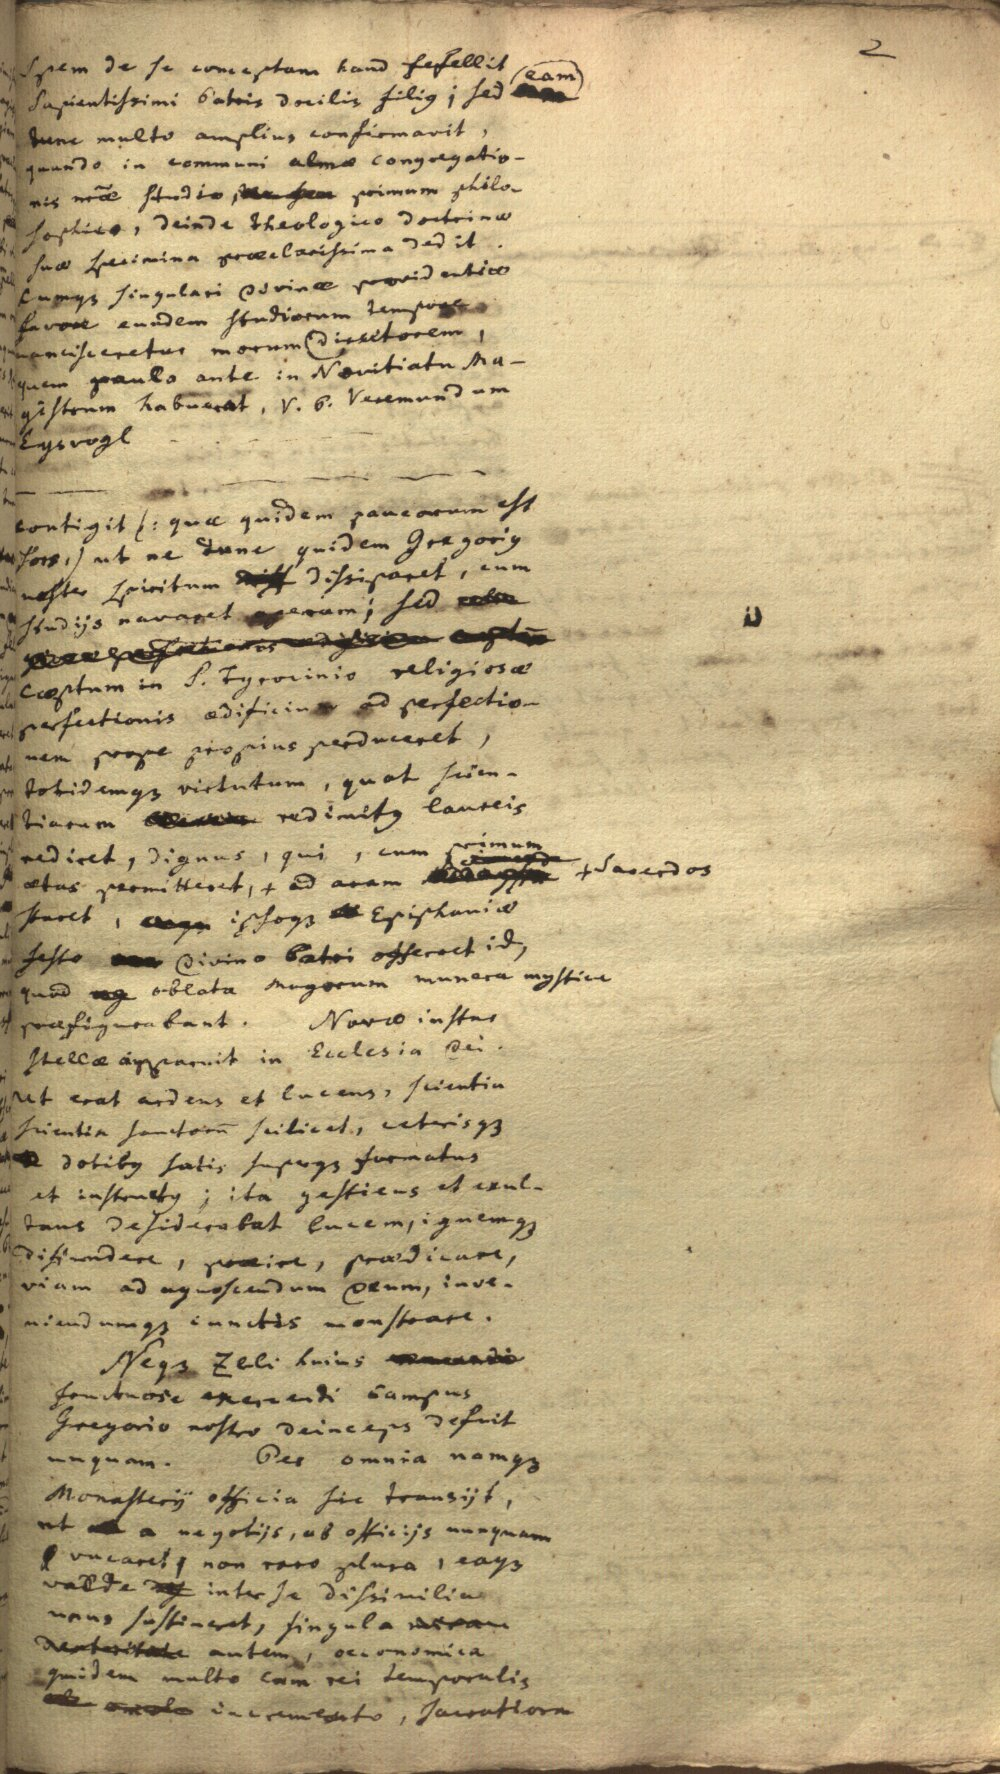 2
Spem de se conceptam haud fefellit
Sapientissimi Patris docilis filiꝰ; sed eam
tunc multo amplius confirmavit,
quando in communi almæ congregatio-
nis nr̃æ studio primum philo-
sophico, deinde theologico doctrinæ
suæ specimina præclarissima dedit.
Cumqꝫ singulari Divinæ providentiæ
favore eundem studiorum tempore
nancisceretur morum Directorem,
quem paulo ante in Novitiatu Ma-
gistrum habuerat, V. P. Veremundum
Eysvogl
contigit (: quæ quidem paucorum est
sors,) ut ne tunc quidem Gregoriꝰ
noster spiritum dissiparet, cum
studijs navaret operam; sed
cæptum in S. Tyrocinio religiosæ
perfectionis ædificium ad perfectio-
nem prope propius perduceret,
totidemqꝫ virtutum, quot scien-
tiarum redimitꝰ laureis
rediret, dignus, qui, cum primum
ætas permitteret, + ad aram + Sacerdos
staret, ipsoqꝫ Epiphaniæ
festo Divino Patri offerret id,
quod oblata Magorum munera mystice
præfigurabant. Novæ instar
stellæ apparuit in Ecclesia Dei.
Ut erat ardens et lucens, scientia
scientia sanctorũ scilicet, ceterisqꝫ
dotibꝰ satis superqꝫ formatus
et instructꝰ; ita gestiens et exul-
tans desiderabat lucem, ignemqꝫ
diffundere, præire, prædicare,
viam ad agnoscendum Deum, inve-
niendumqꝫ cunctis monstrare.
Neqꝫ Zeli huius
fructuose exercendi campus
Gregorio nostro deinceps defuit
unquam. Per omnia namqꝫ
Monasterij officia sic transijt,
ut a negotijs, ab officijs nunquam
vacaret, non raro plura, eaqꝫ
valde inter se dissimilia
unus sustineret, singula
autem, oeconomica
quidem multo cum rei temporalis
incremento, sacratiora